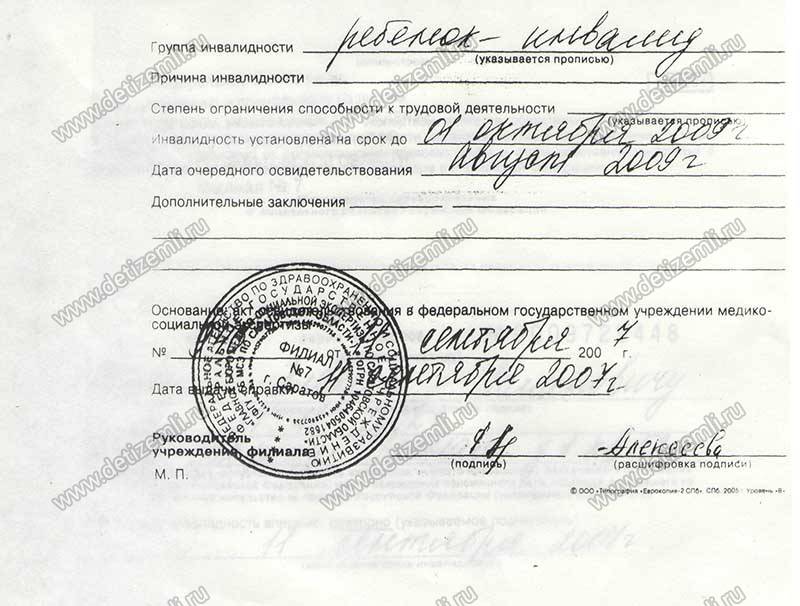 Группа инвалидности ребенок - инвалид
(указывается прописью)
Причина инвалидности
Степень ограничения способности к трудовой деятельности
(указывается прописью)
Инвалидность установлена на срок до 01 октября 2009 г
Дата очередного освидетельствования август 2009 г
Дополнительные заключения -
Основание: акт освидетельствования в федеральном государственном учреждении медико-
социальной экспертизы
№ от 11 сентября 2007 г.
Дата выдачи справки 11 сентября 2007 г
Руководитель
учреждения, филиала Алексеева
(подпись) (расшифровка подписи)
М. П.
© ООО «Типография «Еврокопия-2 СПб» СПб. 2005 Уровень «В»
ФИЛИАЛ
№7
г. Саратов
11 сентября 2007г
www.detizemli.ru